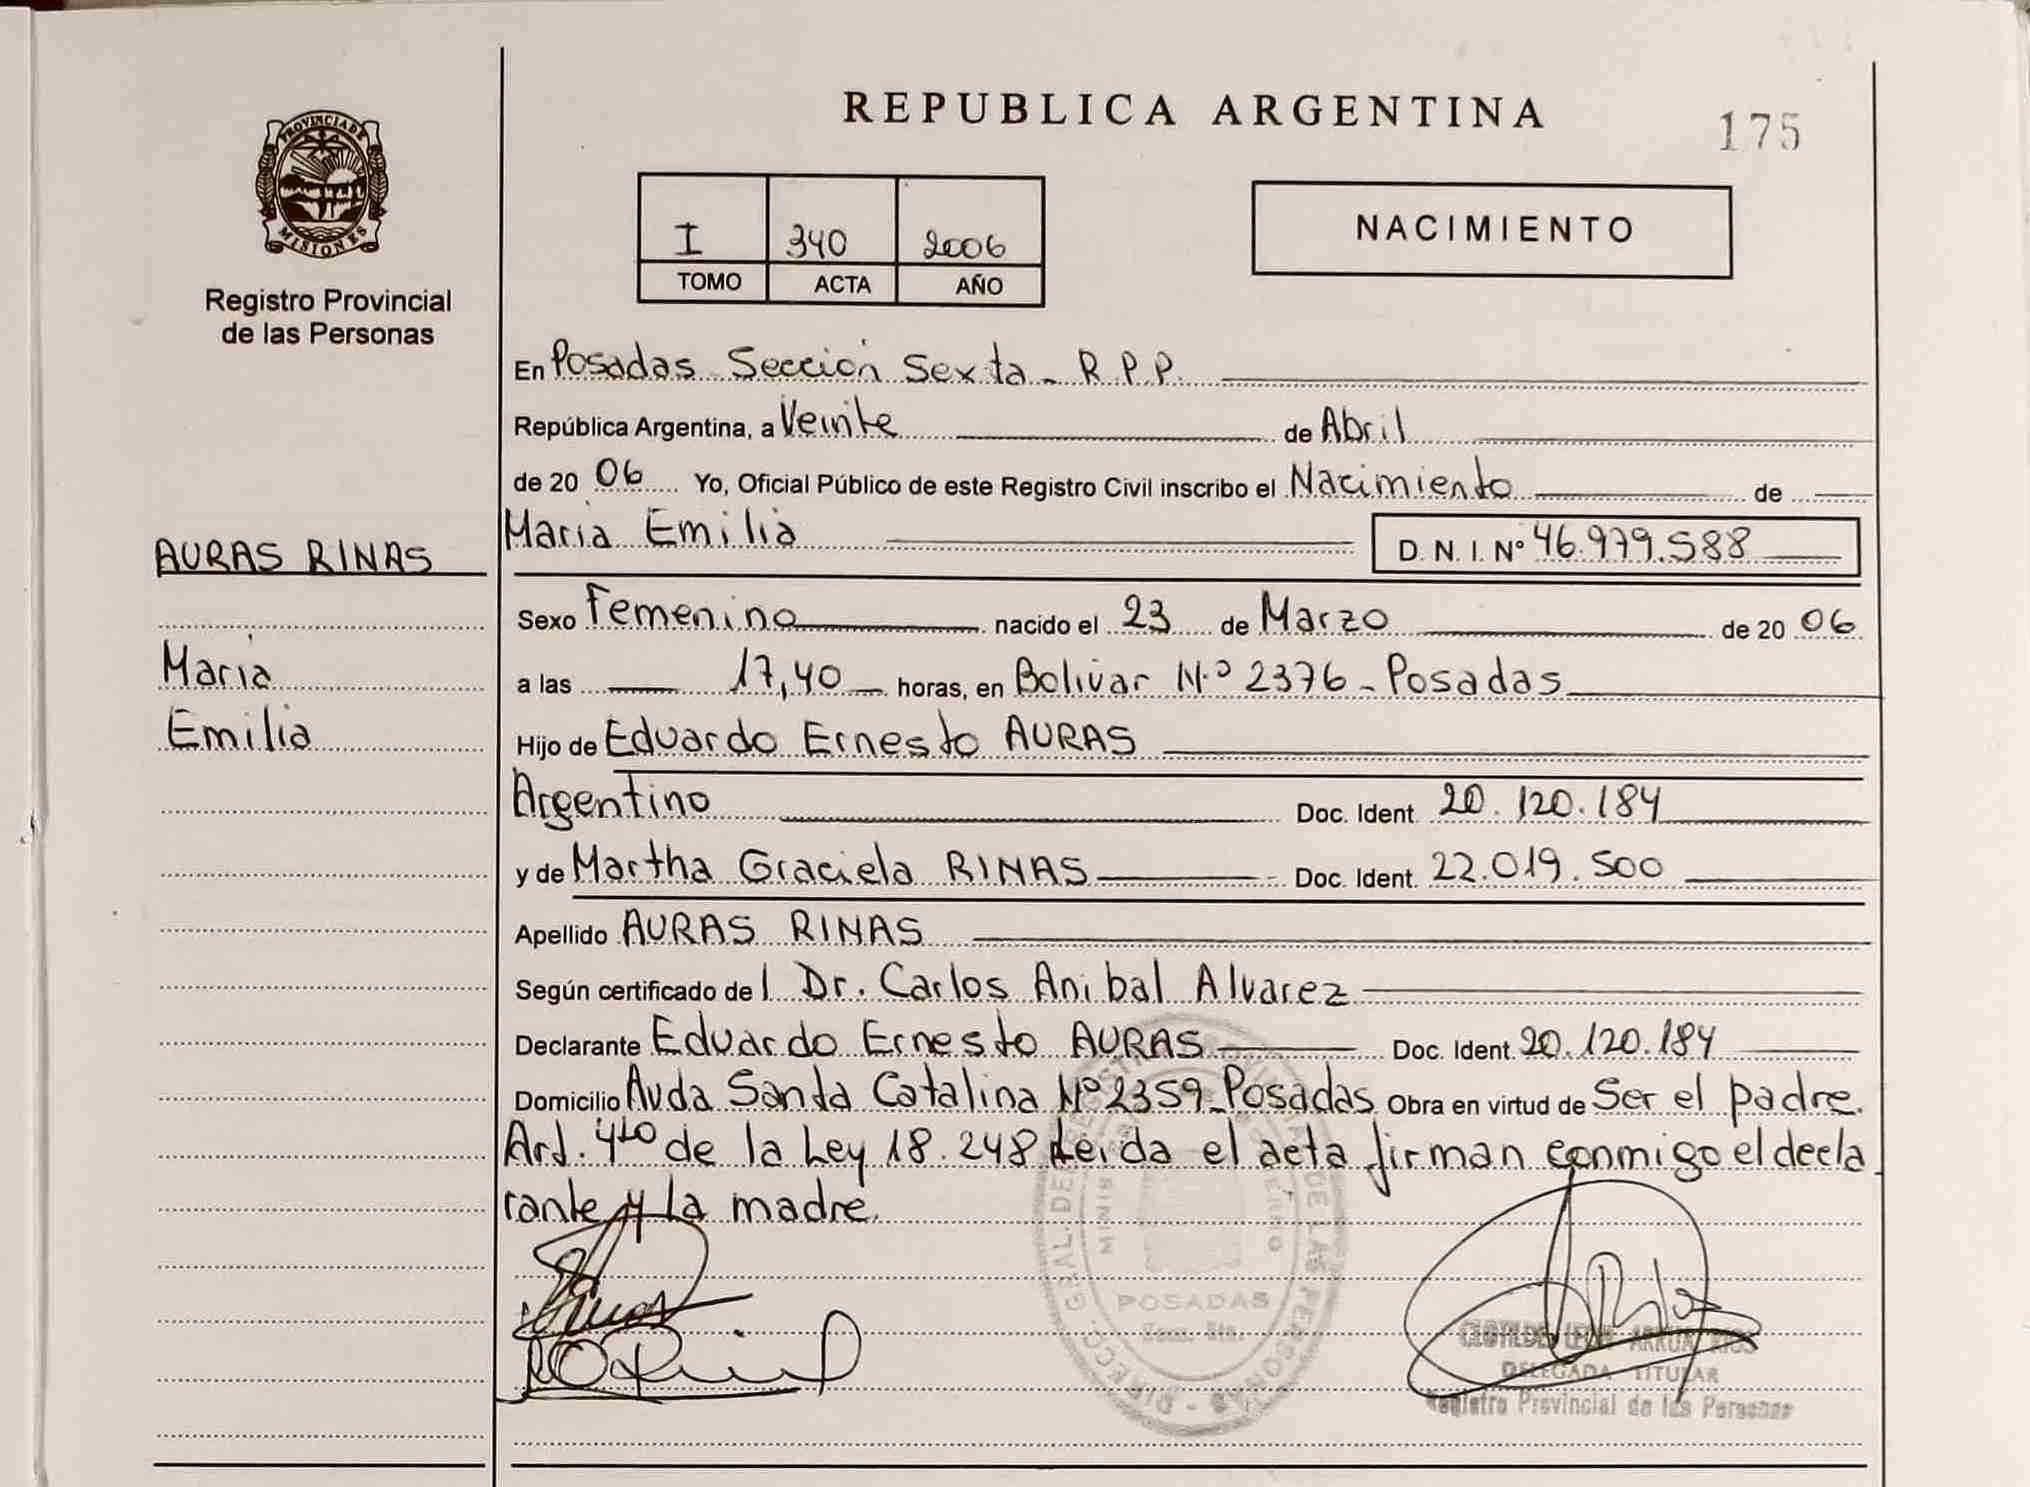 REPUBLICA ARGENTINA
175
PROVINCIA DE
MISIONES
Registro Provincial
de las Personas
I 340 2006
TOMO ACTA AÑO
NACIMIENTO
En Posadas Sección Sexta - R.P.P.
República Argentina, a Veinte de Abril
de 20 06 Yo, Oficial Público de este Registro Civil inscribo el Nacimiento de
Maria Emilia D. N. I. Nº 46.979.588
AURAS RINAS
Sexo Femenino nacido el 23 de Marzo de 20 06
Maria
a las 17,40 horas, en Bolivar Nº 2376 - Posadas
Emilia
Hijo de Eduardo Ernesto AURAS
Argentino Doc. Ident. 20.120.184
y de Martha Graciela RINAS Doc. Ident. 22.019.500
Apellido AURAS RINAS
Según certificado de l Dr. Carlos Anibal Alvarez
Declarante Eduardo Ernesto AURAS Doc. Ident. 20.120.184
Domicilio Avda Santa Catalina Nº 2359 - Posadas Obra en virtud de Ser el padre.
Art. 4to de la Ley 18.248 Leida el acta firman conmigo el decla
rante y la madre.
DIRECC. GRAL. DEL REGISTRO PROVINCIAL DE LAS PERSONAS
POSADAS
DELEGADA TITULAR
Registro Provincial de las Personas